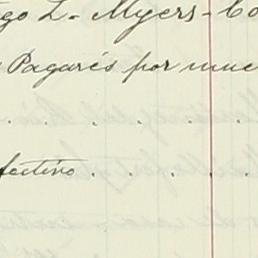 go L. Myers - Co
Pagarés por mue
. . . . . .
fectivo . . . .